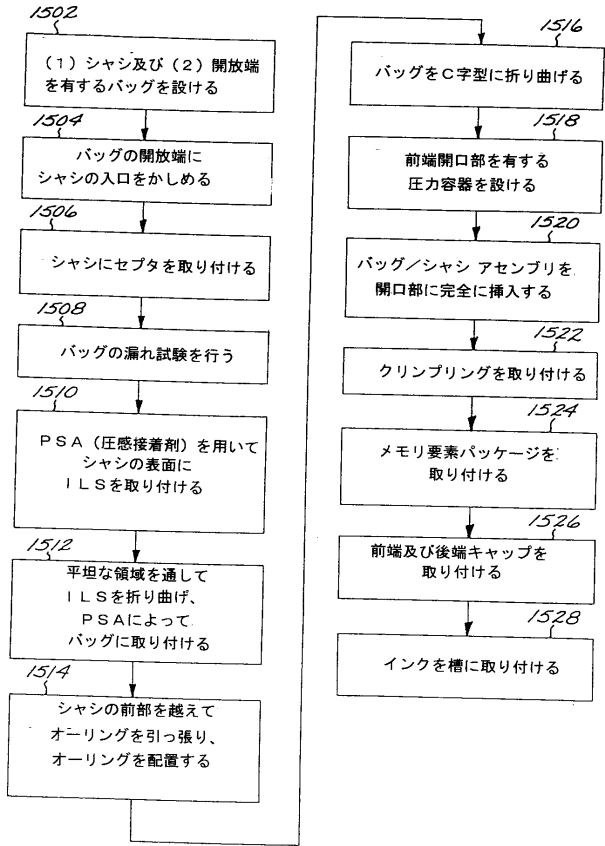 1502
(1)シャシ及び(2)開放端
を有するバッグを設ける
1504
バッグの開放端に
シャシの入口をかしめる
1506
シャシにセプタを取り付ける
1508
バッグの漏れ試験を行う
1510
PSA(圧感接着剤)を用いて
シャシの表面に
ILSを取り付ける
1512
平坦な領域を通して
ILSを折り曲げ、
PSAによって
バッグに取り付ける
1514
シャシの前部を越えて
オーリングを引っ張り、
オーリングを配置する
1516
バッグをC字型に折り曲げる
1518
前端開口部を有する
圧力容器を設ける
1520
バッグ/シャシ アセンブリを
開口部に完全に挿入する
1522
クリンプリングを取り付ける
1524
メモリ要素パッケージを
取り付ける
1526
前端及び後端キャップを
取り付ける
1528
インクを槽に取り付ける